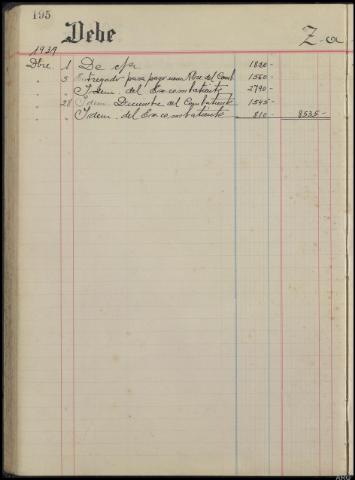 195
Debe
Z-a
1939
Dbre. 1 De c/a 1820-
" 5 Entregado para pago nom. Nbre. del Comb. 1560-
" " Idem. del Excombatiente 2790-
" 28 Idem. Diciembre del Combatiente 1545-
" " Idem. del Excombatiente 810- 8535-